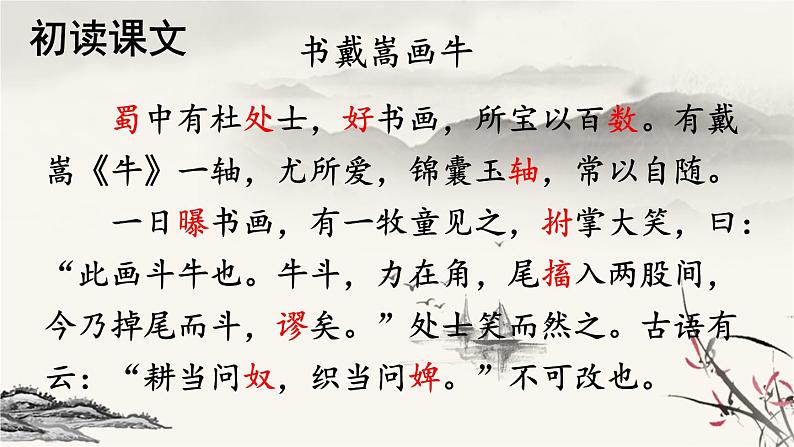 初读课文
书戴嵩画牛
蜀中有杜处士，好书画，所宝以百数。有戴
嵩《牛》一轴，尤所爱，锦囊玉轴，常以自随。
一日曝书画，有一牧童见之，拊掌大笑，曰：
“此画斗牛也。牛斗，力在角，尾搐入两股间，
今乃掉尾而斗，谬矣。”处士笑而然之。古语有
云：“耕当问奴，织当问婢。”不可改也。